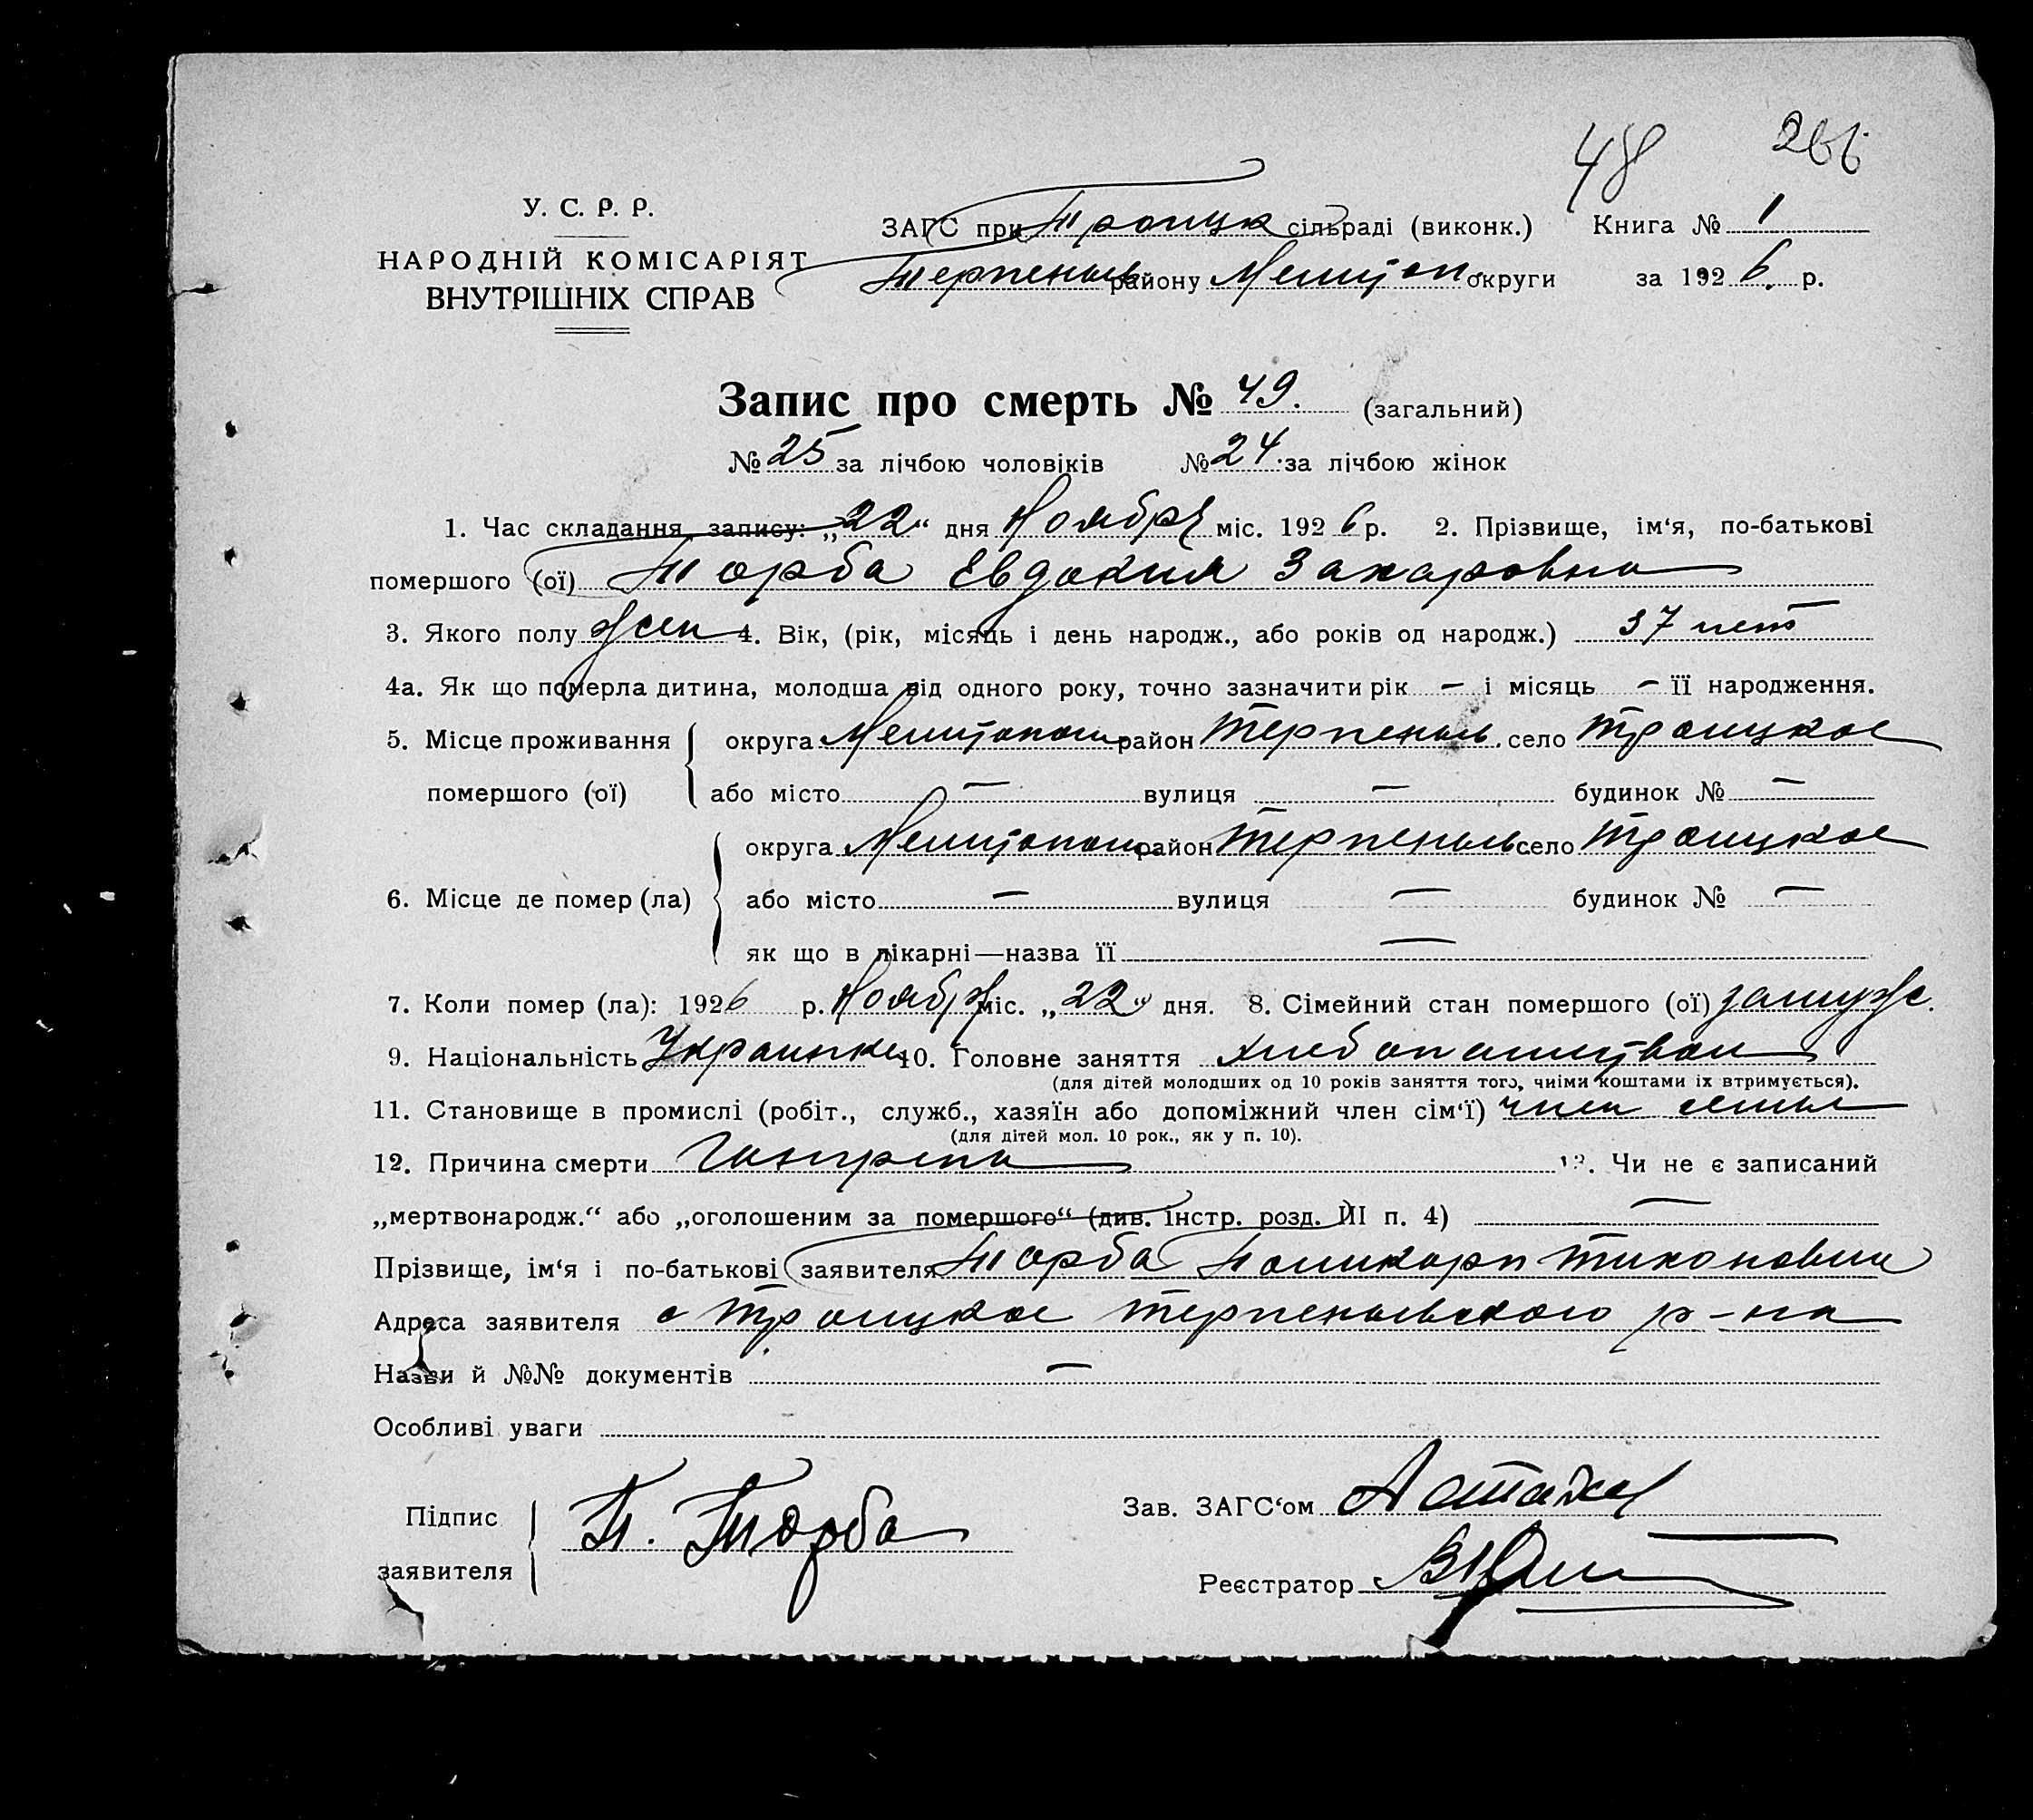 48 266
У. С. Р. Р.
НАРОДНІЙ КОМІСАРІЯТ
ВНУТРІШНІХ СПРАВ
ЗАГС при Троицк сільраді (виконк.) Книга № 1
Терпеньев району Мелитоп округи за 1926 р.
Запис про смерть № 49. (загальний)
№ 25 за лічбою чоловіків № 24 за лічбою жінок
1. Час складання запису: „22“ дня Ноября міс. 1926 р. 2. Прізвище, ім‘я, по-батькові
помершого (ої) Торба Евдокия Захаровна
3. Якого полу жен 4. Вік, (рік, місяць і день народж., або років од народж.) 37 лет
4а. Як що померла дитина, молодша від одного року, точно зазначити рік — і місяць — її народження.
5. Місце проживання округа Мелитопол район Терпеньев. село Троицкое
помершого (ої) або місто — вулиця — будинок № —
округа Мелитопол район Терпеньев село Троицкое
6. Місце де помер (ла) або місто — вулиця — будинок № —
як що в лікарні—назва її —
7. Коли помер (ла): 1926 р. Ноябр міс. „22“ дня. 8. Сімейний стан помершого (ої) замуж.
9. Національність Украинка 10. Головне заняття хлебопашество
(для дітей молодших од 10 років заняття того, чиїми коштами їх втримується).
11. Становище в промислі (робіт., служб., хазяїн або допоміжний член сім‘ї) член семьи
(для дітей мол. 10 рок., як у п. 10).
12. Причина смерти Гангрена 13. Чи не є записаний
„мертвонародж.“ або „оголошеним за помершого“ (див. інстр. розд. III п. 4) —
Прізвище, ім‘я і по-батькові заявителя Торба Поликарп Тихонович
Адреса заявителя с Троицкое Терпеньевского р-на
Назви й №№ документів —
Особливі уваги
Підпис Зав. ЗАГС‘ом
П. Торба
заявителя Реєстратор